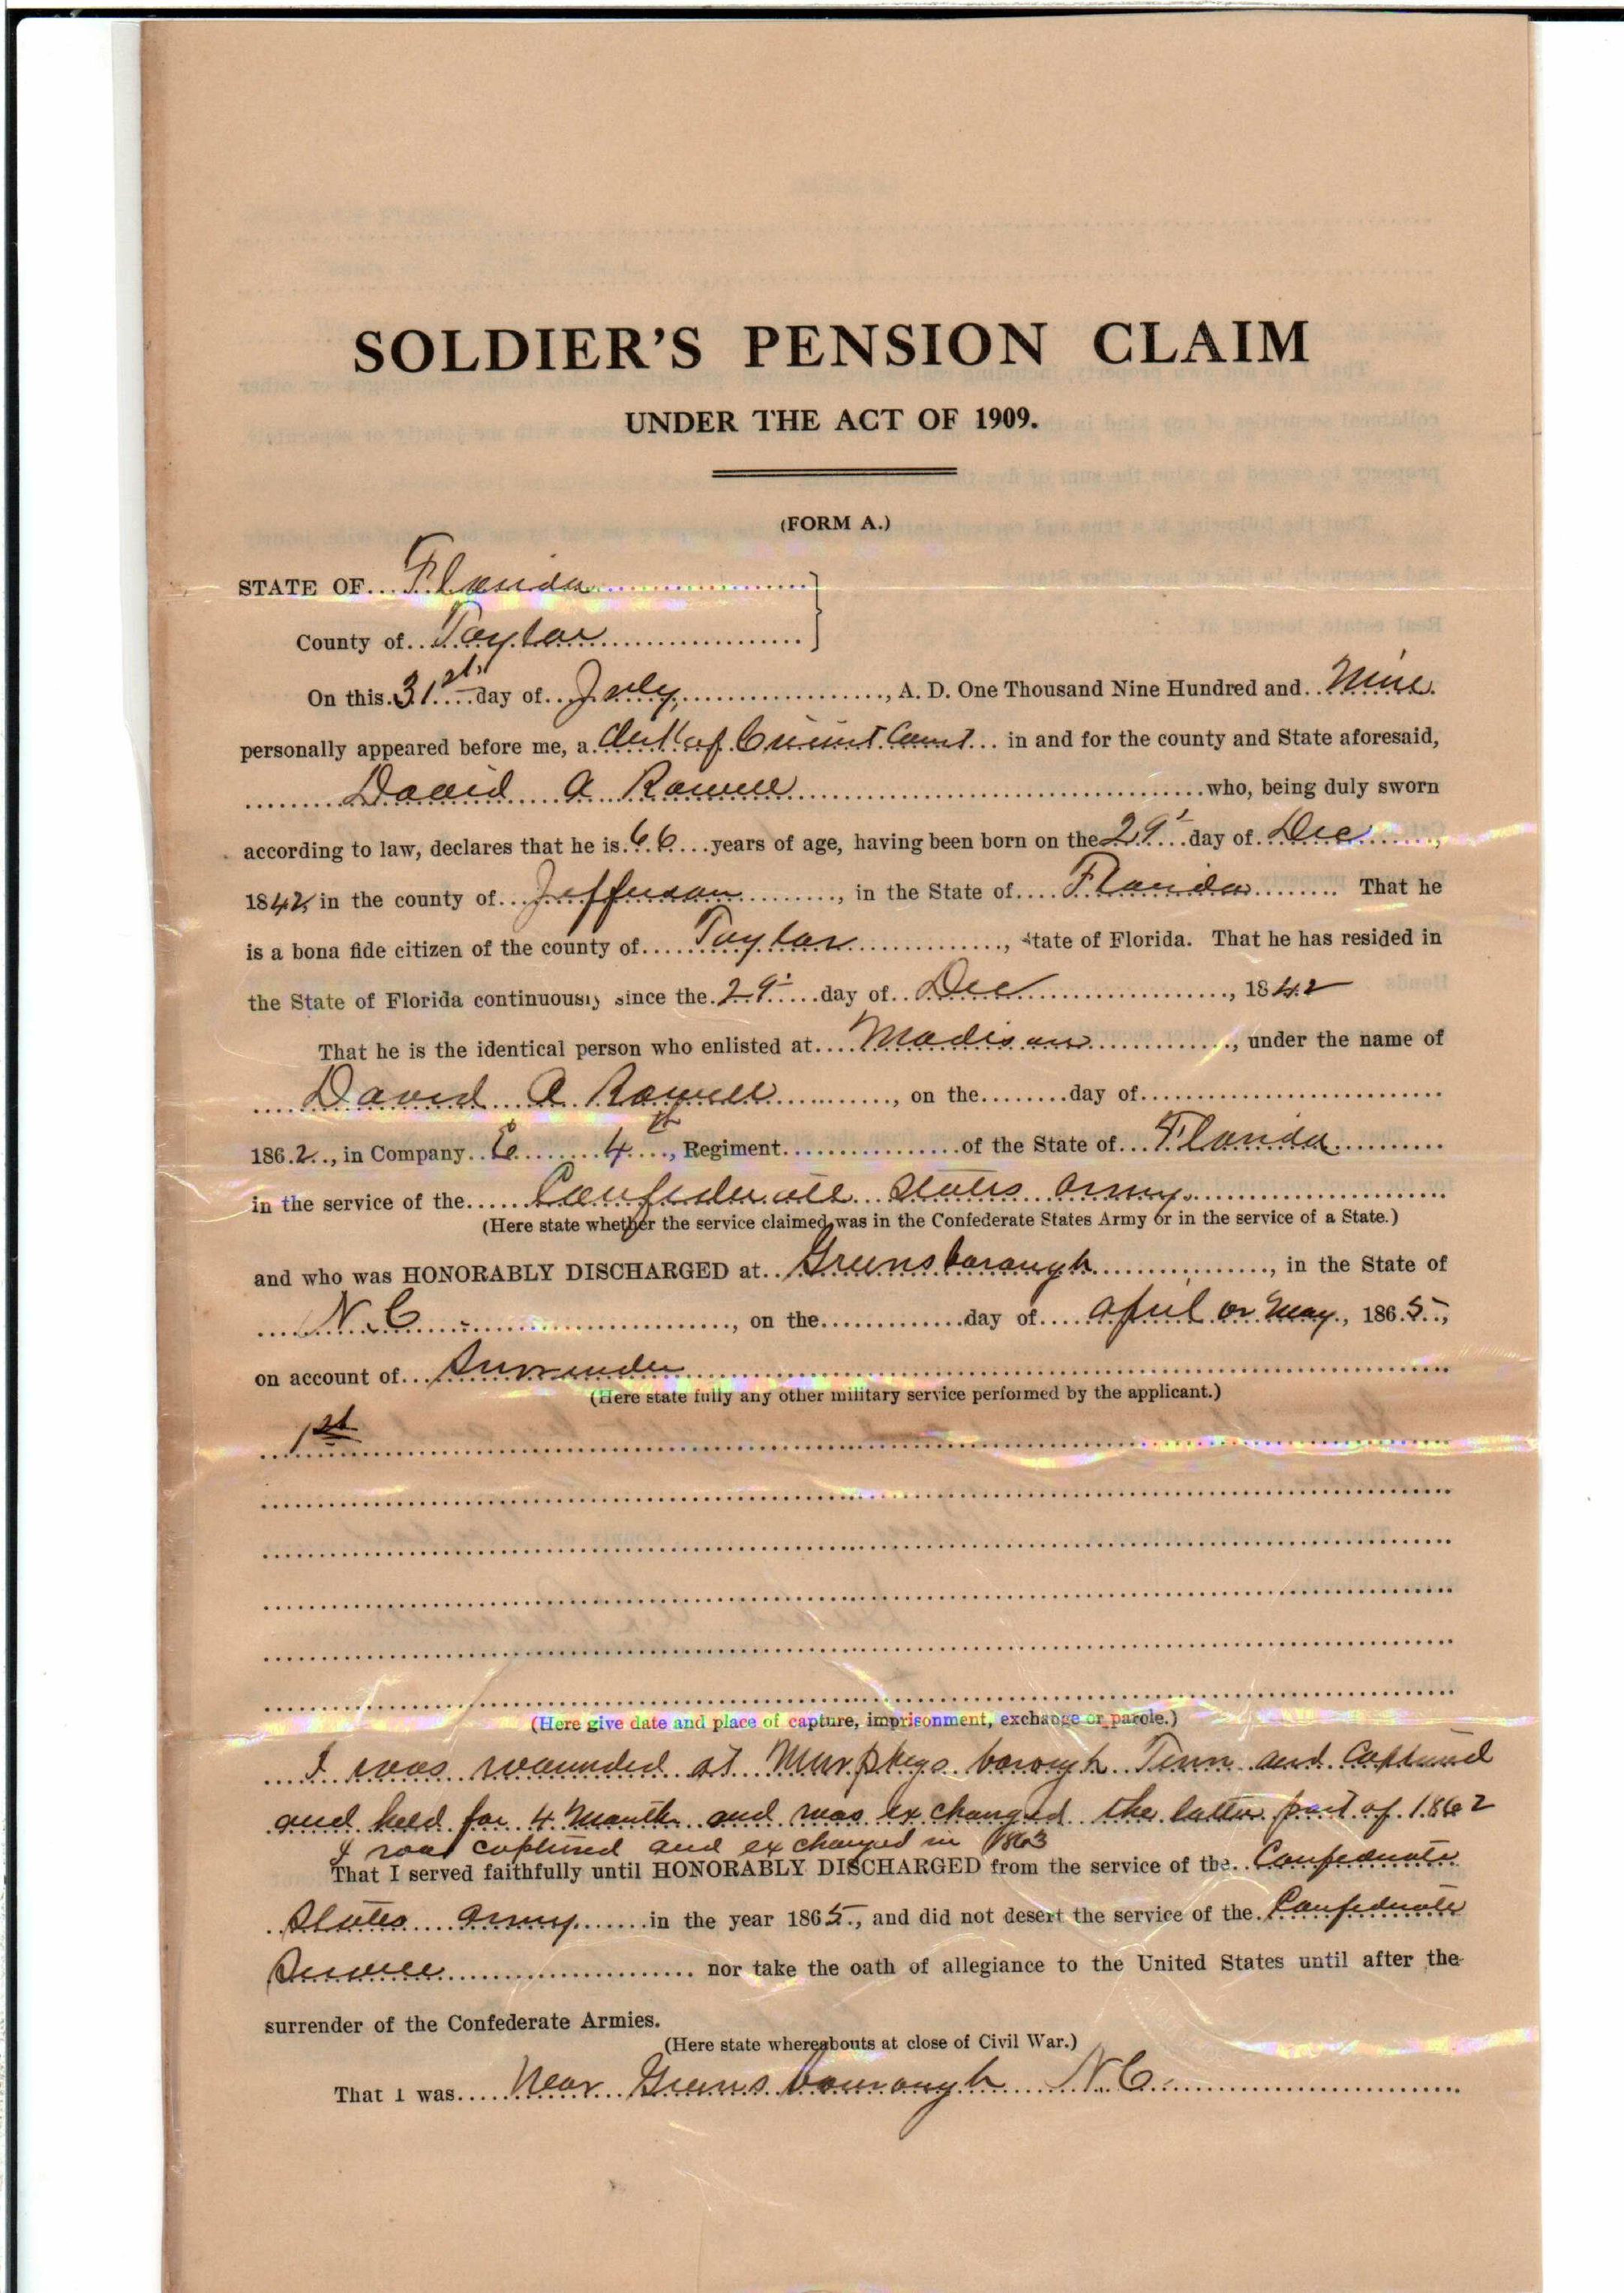 SOLDIER'S PENSION CLAIM
UNDER THE ACT OF 1909.
(FORM A.)
STATE OF Florida
County of Taylor
On this 31st day of July, A. D. One Thousand Nine Hundred and Nine
personally appeared before me, a Clerk of Circuit Court in and for the county and State aforesaid,
David A Rowell who, being duly sworn
according to law, declares that he is 66 years of age, having been born on the 29 day of Dec,
1842 in the county of Jefferson, in the State of Florida That he
is a bona fide citizen of the county of Taylor, State of Florida. That he has resided in
the State of Florida continuously since the 29 day of Dec, 1842
That he is the identical person who enlisted at Madison, under the name of
David A Rowell, on the day of
1862, in Company E 4th, Regiment of the State of Florida
in the service of the Confederate States Army
(Here state whether the service claimed was in the Confederate States Army or in the service of a State.)
and who was HONORABLY DISCHARGED at Greensborough, in the State of
N. C., on the day of April or May, 1865,
on account of Surrender
(Here state fully any other military service performed by the applicant.)
1st
(Here give date and place of capture, imprisonment, exchange or parole.)
I was wounded at Murpheysborough Tenn and Captured
and held for 4 Months and was exchanged the latter part of 1862
I was captured and exchanged in 1863
That I served faithfully until HONORABLY DISCHARGED from the service of the Confederate
States Army in the year 1865, and did not desert the service of the Confederate
Service nor take the oath of allegiance to the United States until after the
surrender of the Confederate Armies.
(Here state whereabouts at close of Civil War.)
That I was Near Greensbourough N. C.